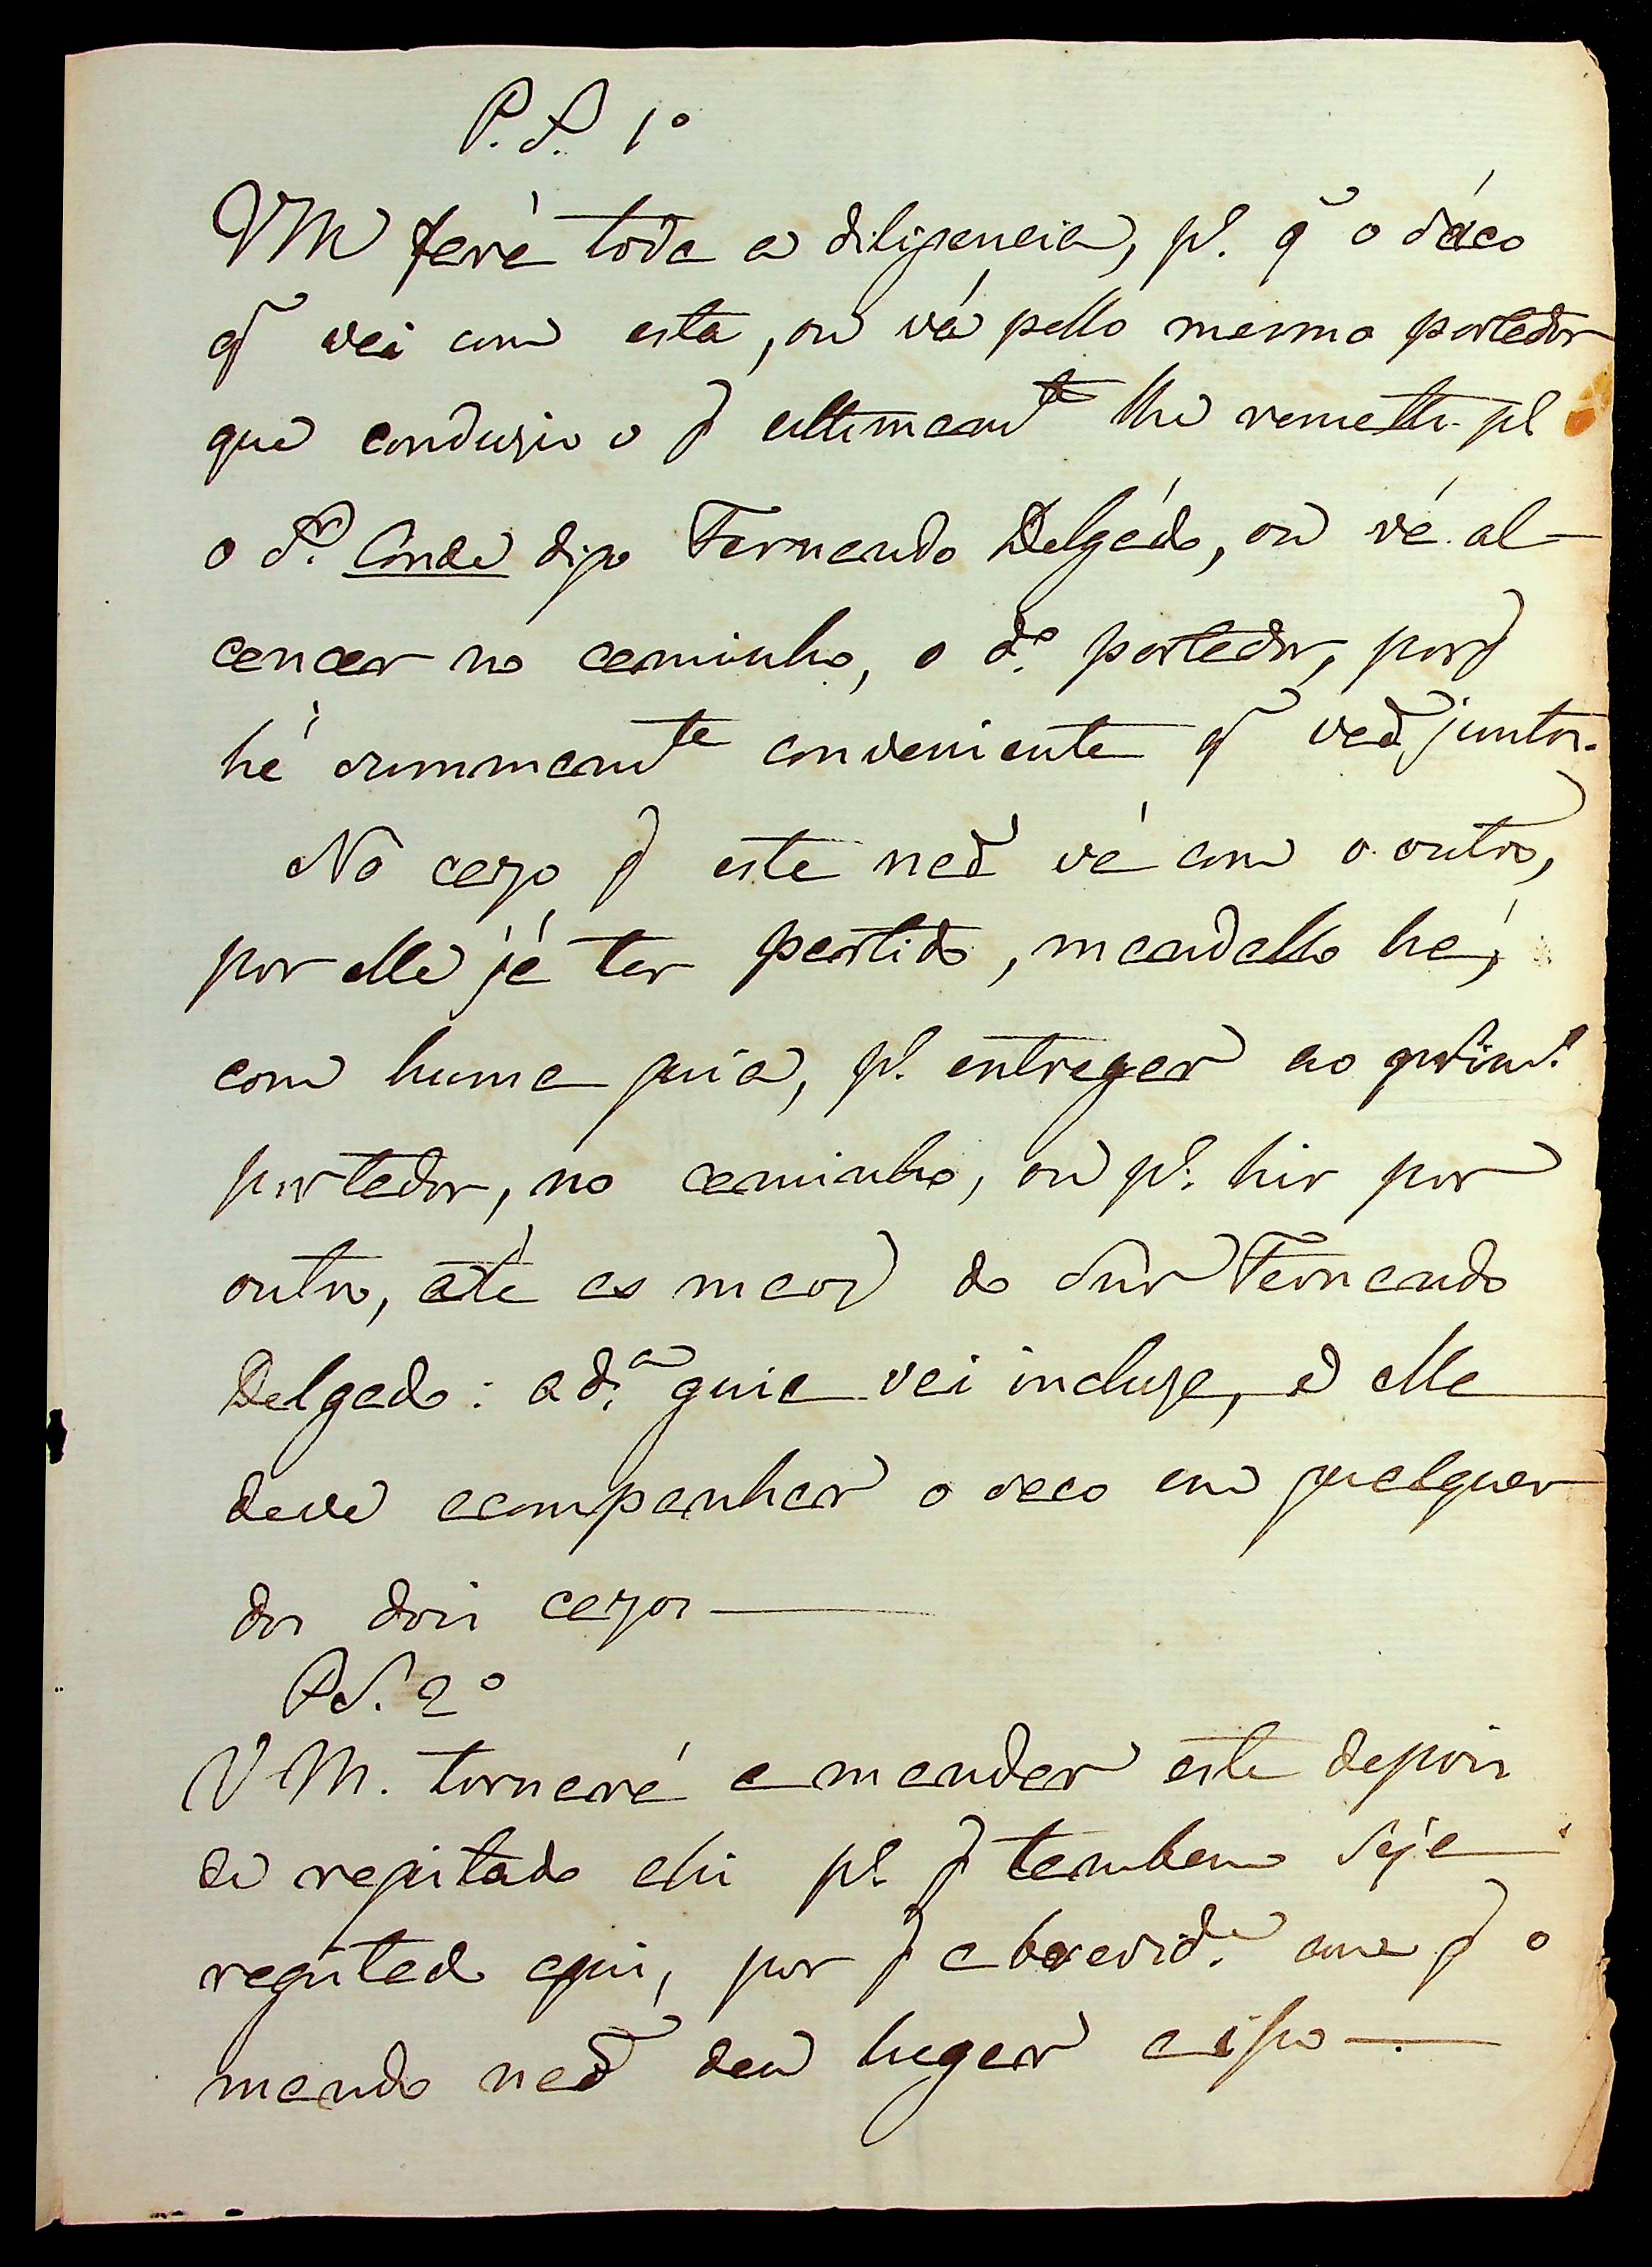 P. S. 1º
VM fará toda a diligencia, pª. q̃ o sáco
q̃ vai com esta, ou vá pello mesmo portador
que conduzio o q̃ ultimamte lhe remetti pª
o Sr. Conde digo Fernando Delgádo, ou vá al-
cançar no caminho, o dº. portador, porq̃
hé summamte conveniente q̃ vaõ juntos.
No cazo q̃ este naõ vá com o outro,
por elle já ter partido, mandallo há,
com huma guia, pª. entregar ao primº.
portador, no caminho, ou pª. hir por
outro, até as maos do Snr Fernando
Delgado: a dª. guia vai incluza, e ella
deve acompanhar o saco em qualquer
dos dois cazos —
P S. 2º
V M. tornará a mandar este depois
de registado ahi pª. q̃ tambem seja
registado aqui, por q̃ a brevidᵉ. com q̃ o
mando naõ deu lugar a isso —